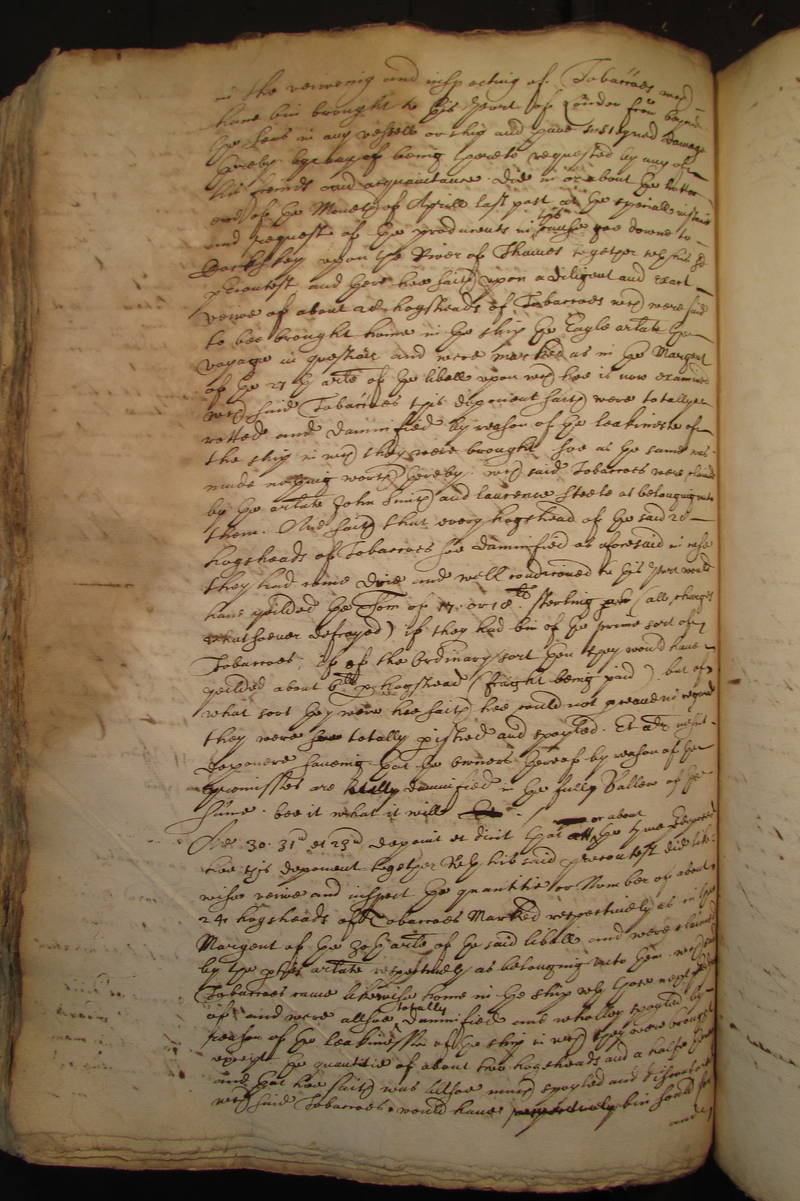 in the veiwing and inspecting of Tobaccoes w:ch
have bin brought to this Port of London from beyond
the Seas in any vessell or ship and have received damage
thereby by reason of being thereto requested by any of
his freinds and acquaintance did in or about the latter
end of the Moneth of Aprill last past at the speciall instance
and request of the producents in this cause goe downe to
key upon the River of Thames together with his
precontest and there hee saith upon a diligent and exact
veiwe of about 28 hogsheads of Tobaccoes w:ch were said
to bee brought home in the ship the Eagle arlate the
voyage in question and were marked as in the Margent
of the 27th arle of the libell upon w:ch hee is now examined
w:ch said Tobaccoes this deponent saith were totallye
rotted and damnified by reason of the leakinesse of
the ship in w:ch they were brought soe as the same was
made nothing worth thereby. w:ch said Tobaccoes were claimed
by the arlate John Smith and Laurence Steele as belonging unto
them. And saith that every hogshead of the said 28
hogsheads of Tobaccoes soe damnified as aforesaid in case
they had come drie and well conditioned to this Port would
have yeilded the Som of 17 or 18 li sterling (all charges
whatsoever defrayed) if they had bin of the prime sort of
Tobaccoes, if of the Ordinary sort then they would have
yeilded about 6 li p hogshead (fraight being paid) but of
what sort they were hee saith hee could not in regard
they were totally and spoyled. Et alr nescit
deponere saveing that the owners thereof by reason of the
premisses are damnified in the full vallew of the
same. bee it what it will
Ad 30. 31 et 23 deponit et dicit that at or about the tyme
hee this deponent together with his said precontest did like
wise veiwe and inspect the quantitie or Number of about
24 hogsheads of Tobaccoes Marked respectively as in the
Margent of the 30th arle of the said libell and were claimed
by the arlate respectively as belonging unto them. w:ch said
Tobaccoes came likewise home in the ship
of and were allsoe totally damnified and wholley spoyled by
reason of the leakinesse of the ship in w:ch they were brought
except the quantitie of about two hogsheads and a halfe
and that hee saith was allsoe much spoyled and
w:ch said Tobaccoes would have bin sould
and